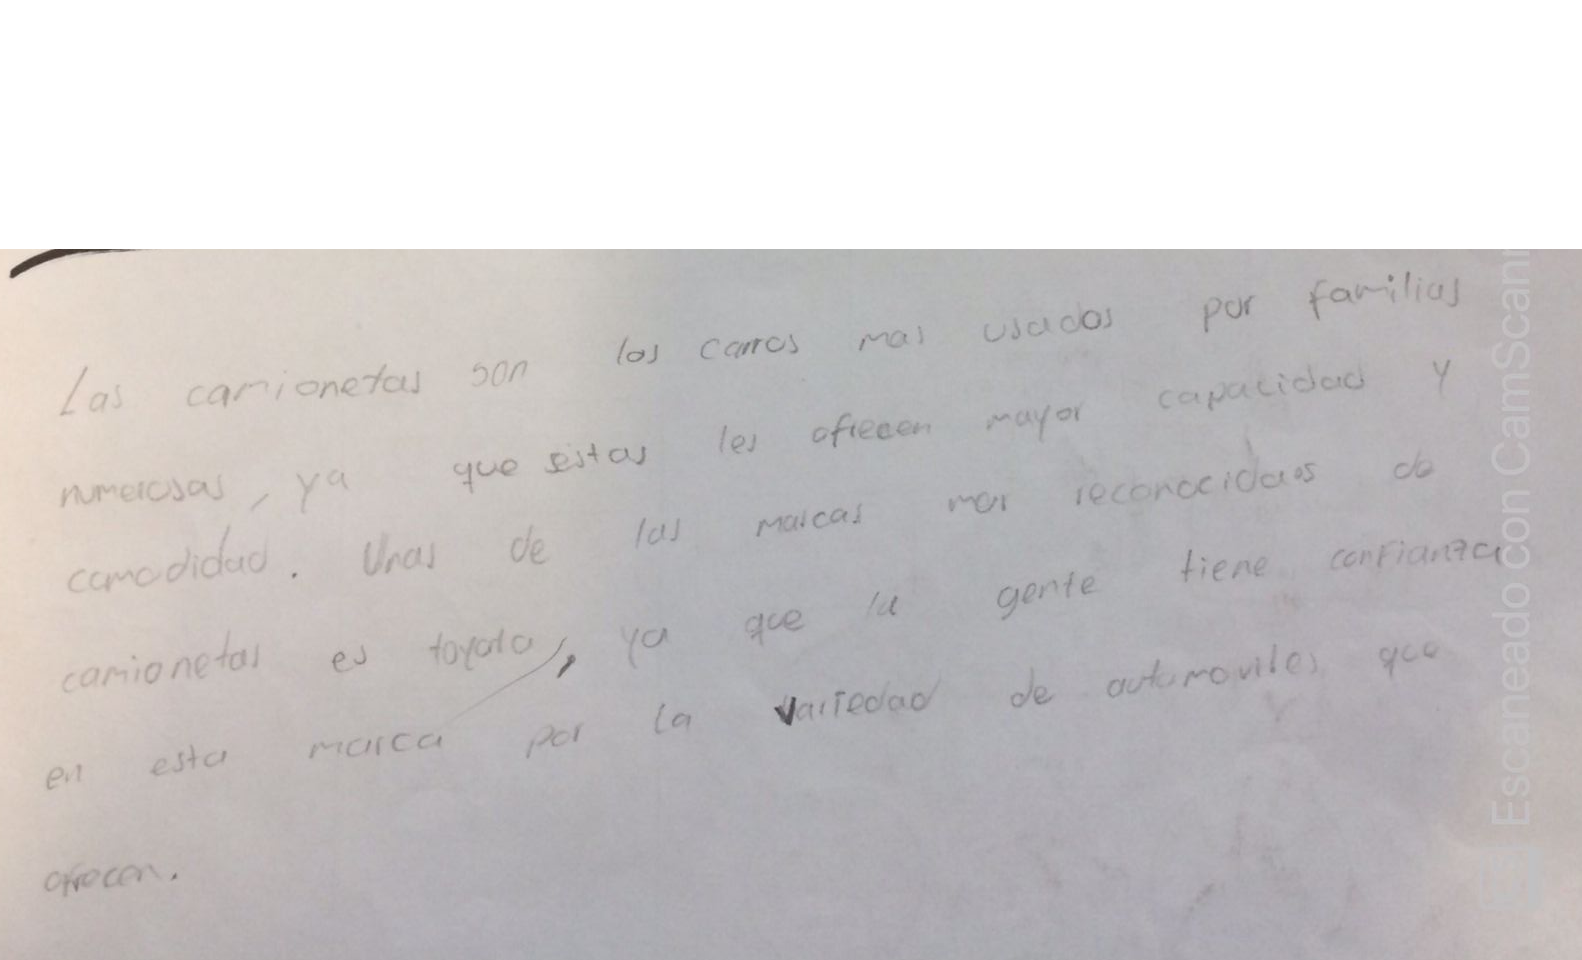 Las camionetas son los carros mas usados por familias
numerosas, ya que estas les ofrecen mayor capacidad y
comodidad. Unas de las marcas mas reconocidas de
camionetas es toyota, ya que la gente tiene confianza
en esta marca por la variedad de automoviles que
ofrecen.
Escaneado con CamScann